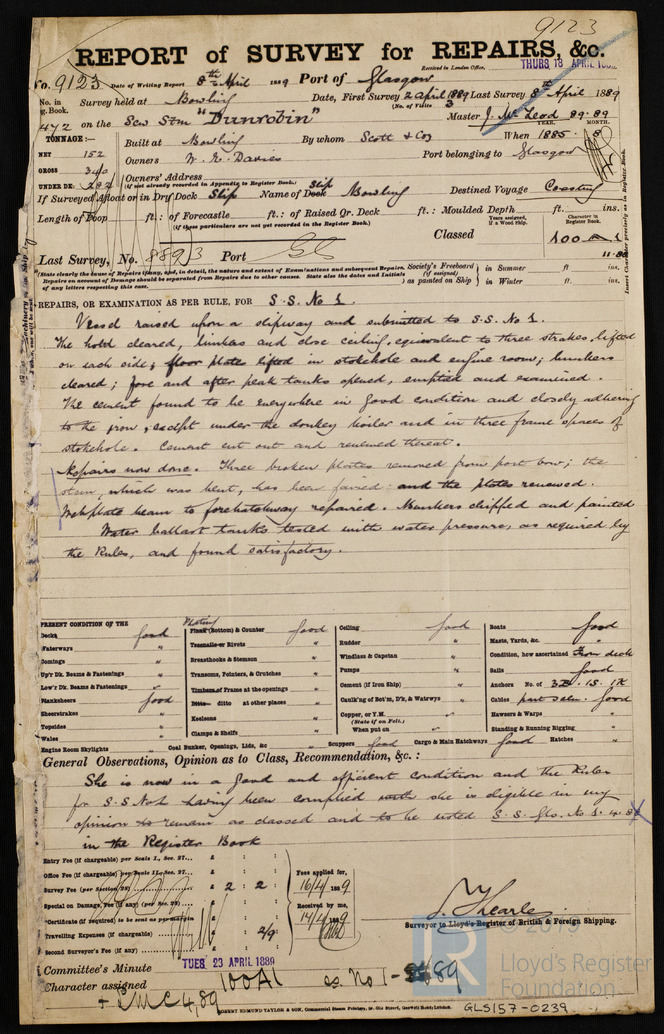 9123
REPORT of SURVEY for REPAIRS, &c.
Received in London Office, THURS 18 APRIL 1889
No. 9123 Date of Writing Report 8th April 1889 Port of Glasgow
No. in Survey held at Bowling Date, First Survey 2 April 1889 Last Survey 8th April 1889
g. Book. (No. of Visits 3
472 on the Scw Stm "Dunrobin" Master J. McLeod 89.89
YEAR. MONTH.
TONNAGE:— Built at Bowling By whom Scott & Coy When 1885. 8
NET 152 Owners W. E. Davies Port belonging to Glasgow
GROSS 340 Owners' Address
UNDER DK. 282 (if not already recorded in Appendix to Register Book.)
If Surveyed Afloat or in Dry Dock Slip Name of Dock Slip Bowling Destined Voyage Coasting
Length of Poop ft.: of Forecastle ft.: of Raised Qr. Deck ft.: Moulded Depth ft. ins.
(if these particulars are not yet recorded in the Register Book.) Years assigned, if a Wood Ship. Character in Register Book.
Classed 100 A 1
Last Survey, No. 8893 Port Gls 11.88
(State clearly the cause of Repairs if any, and, in detail, the nature and extent of Examinations and subsequent Repairs. Society's Freeboard in Summer ft ins.
Repairs on account of Damage should be separated from Repairs due to other causes. State also the dates and Initials (if assigned)
of any letters respecting this case. as painted on Ship in Winter ft. ins.
Insert Character precisely as in Register Book.
REPAIRS, OR EXAMINATION AS PER RULE, FOR S.S. No 1.
Vessel raised upon a slipway and submitted to S.S. No 1.
The hold cleared, limbers and close ceiling, equivalent to three strakes, lifted
on each side; floor plates lifted in stokehole and engine room; bunkers
cleared; fore and after peak tanks opened, emptied and examined.
The cement found to be everywhere in good condition and closely adhering
to the iron, except under the donkey boiler and in three frame spaces of
stokehole. Cement cut out and renewed thereat.
Repairs now done. Three broken plates removed from port bow; the
stem, which was bent, has been faired and the plates renewed.
Webplate beam to forehatchway repaired. Bunkers chipped and painted
Water ballast tanks tested with water pressure, as required by
the Rules, and found satisfactory.
PRESENT CONDITION OF THE
Decks good
Waterways "
Comings "
Up'r Dk. Beams & Fastenings "
Low'r Dk. Beams & Fastenings "
Planksheers good
Sheerstrakes "
Topsides "
Wales "
Plating
Plank (Bottom) & Counter good
Treenails or Rivets "
Breasthooks & Stemson "
Transoms, Pointers, & Crutches "
Timbers of Frame at the openings "
Ditto ditto at other places "
Keelsons "
Clamps & Shelfs "
Ceiling good
Rudder "
Windlass & Capstan "
Pumps "
Cement (if Iron Ship) "
Caulk'ng of Bot'm, D'k, & Watrwys "
Copper, or Y.M. "
(State if on Felt.)
When put on "
Boats good
Masts, Yards, &c. "
Condition, how ascertained From deck
Sails good
Anchors No. of 3B. 1S. 1K
Cables part seen. good
Hawsers & Warps "
Standing & Running Rigging "
Engine Room Skylights " Coal Bunker, Openings, Lids, &c " Scuppers good Cargo & Main Hatchways good Hatches "
General Observations, Opinion as to Class, Recommendation, &c.:
She is now in a good and efficient condition and the Rules
for S.S. No 1 having been complied with she is eligible in my
opinion to remain as classed and to be noted S.S. Gls. No 1. 4.89
in the Register Book
Entry Fee (if chargeable) per Scale I., Sec. 27...
Office Fee (if chargeable) per Scale I., Sec. 27...
Survey Fee (per Section 28) £ 2 : 2 :
Special on Damage, Fee (if any) (per Sec. 28)
*Certificate (if required) to be sent as per margin
Travelling Expenses (if chargeable) 2/9
Second Surveyor's Fee (if any)
Fees applied for,
16/4 1889
Received by me,
14/4 1889
Surveyor to Lloyd's Register of British & Foreign Shipping.
TUES 23 APRIL 1889
Committee's Minute
Character assigned 100A1 ss. No 1-89
+ LMC 4,89
ROBERT EDMUND TAYLOR & SON, Commercial Steam Printers, 19, Old Street, Goswell Road, London.
GLS157-0239
LR
Lloyd's Register
Foundation